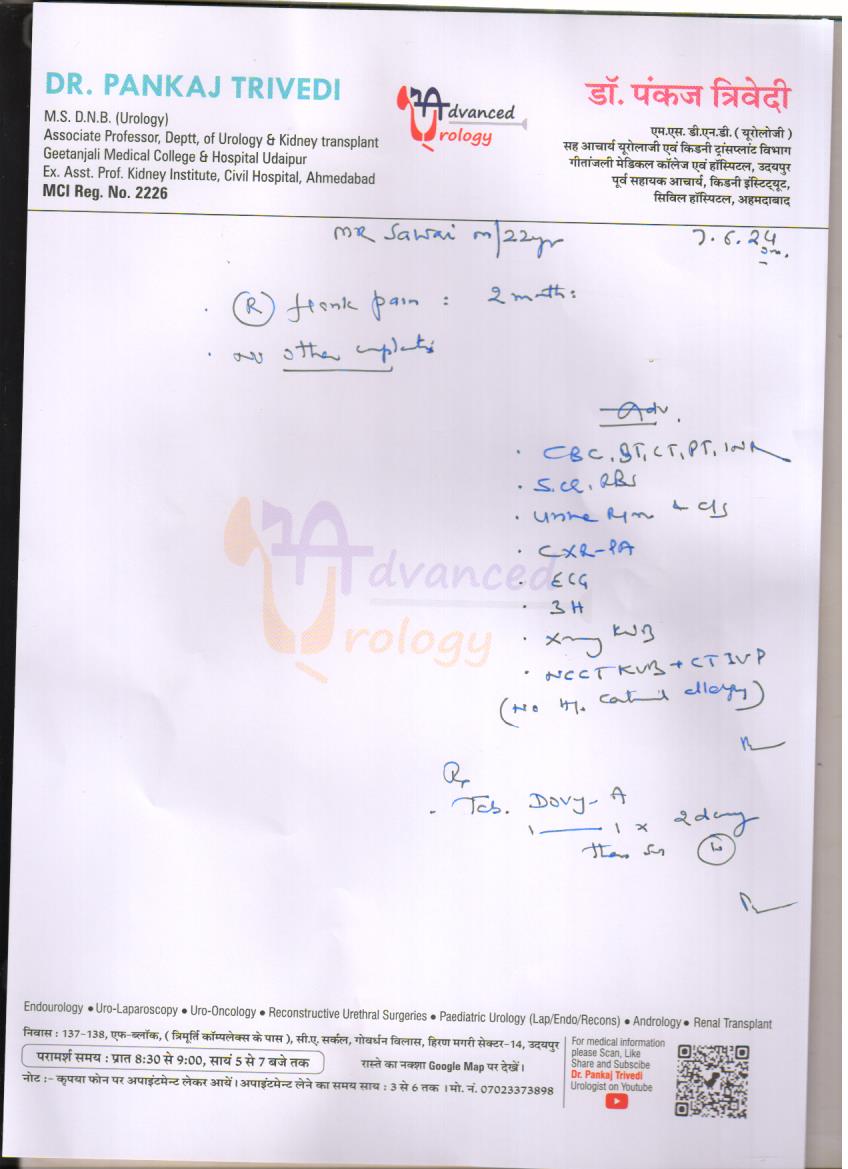 DR. PANKAJ TRIVEDI
M.S. D.N.B. (Urology)
Associate Professor, Deptt, of Urology & Kidney transplant
Geetanjali Medical College & Hospital Udaipur
Ex. Asst. Prof. Kidney Institute, Civil Hospital, Ahmedabad
MCI Reg. No. 2226
Advanced
Urology
डॉ. पंकज त्रिवेदी
एम.एस. डी.एन.डी. ( यूरोलोजी )
सह आचार्य यूरोलाजी एवं किडनी ट्रांसप्लांट विभाग
गीतांजली मेडिकल कॉलेज एवं हॉस्पिटल, उदयपुर
पूर्व सहायक आचार्य, किडनी इंस्टिट्यूट,
सिविल हॉस्पिटल, अहमदाबाद
MR Sawai M/22yr 7.6.24
(R) flank pain : 2 month:
No other complaints
Adv.
CBC, BT, CT, PT, INR
S.Cr, RBS
Urine R/M & C/S
CXR-PA
ECG
3H
Xray KUB
NCCT KUB + CT IVP
(No H/o allergy)
Advanced
Urology
Rx
Tab. DOVY-A
1 —— 1 x 2 day
then
Endourology ● Uro-Laparoscopy ● Uro-Oncology ● Reconstructive Urethral Surgeries ● Paediatric Urology (Lap/Endo/Recons) ● Andrology ● Renal Transplant
निवास : 137-138, एफ-ब्लॉक, ( त्रिमूर्ति कॉम्पलेक्स के पास ), सी.ए. सर्कल, गोवर्धन विलास, हिरण मगरी सेक्टर-14, उदयपुर
परामर्श समय : प्रात 8:30 से 9:00, सायं 5 से 7 बजे तक रास्ते का नक्शा Google Map पर देखें।
नोट :- कृपया फोन पर अपाइंटमेन्ट लेकर आयें। अपाइंटमेन्ट लेने का समय साय : 3 से 6 तक । मो. नं. 07023373898
For medical information
please Scan, Like
Share and Subscibe
Dr. Pankaj Trivedi
Urologist on Youtube